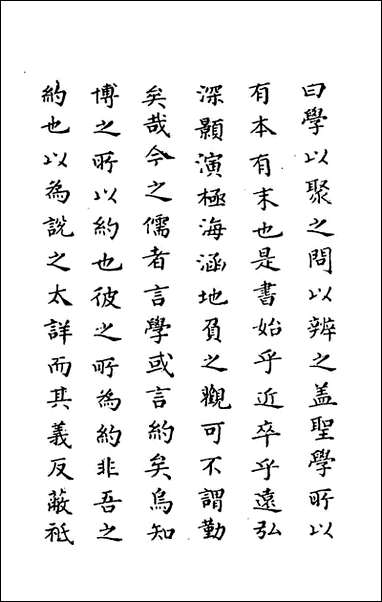 曰學以聚之問以辨之盖聖學所以
有本有末也是書始乎近卒乎遠弘
深顥演極海涵地負之觀可不謂勤
矣哉今之儒者言學或言約矣烏知
博之所以約也彼之所為約非吾之
約也以為說之太詳而其義反蔽祗